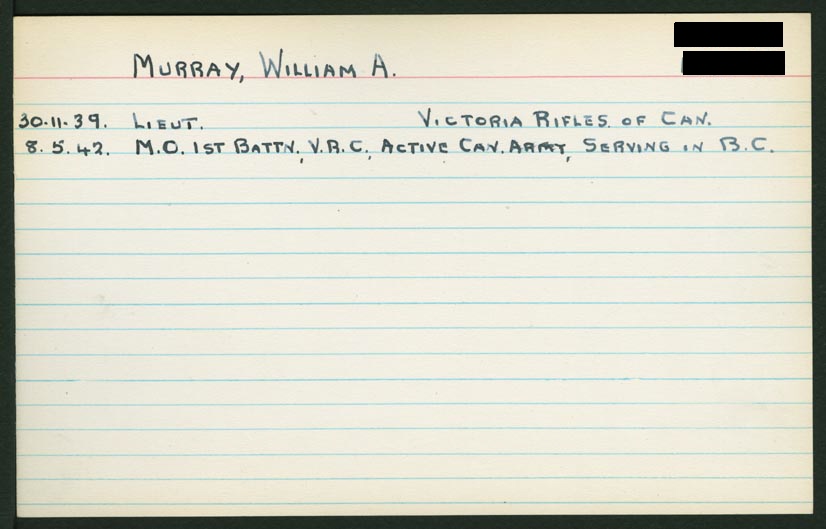 MURRAY, WILLIAM A.
30.11.39. LIEUT. VICTORIA RIFLES. OF CAN.
8.5.42. M.O. 1ST BATTN., V.R.C., ACTIVE CAN. ARMY, SERVING IN B.C.